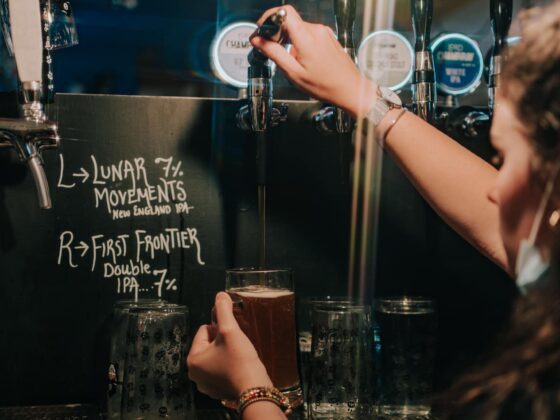 L→LUNAR 7%
MOVEMENTS
NEW ENGLAND IPA
R→FIRST FRONTIER
DOUBLE
IPA...7%
CHAMPRAY
WHITE
IPA